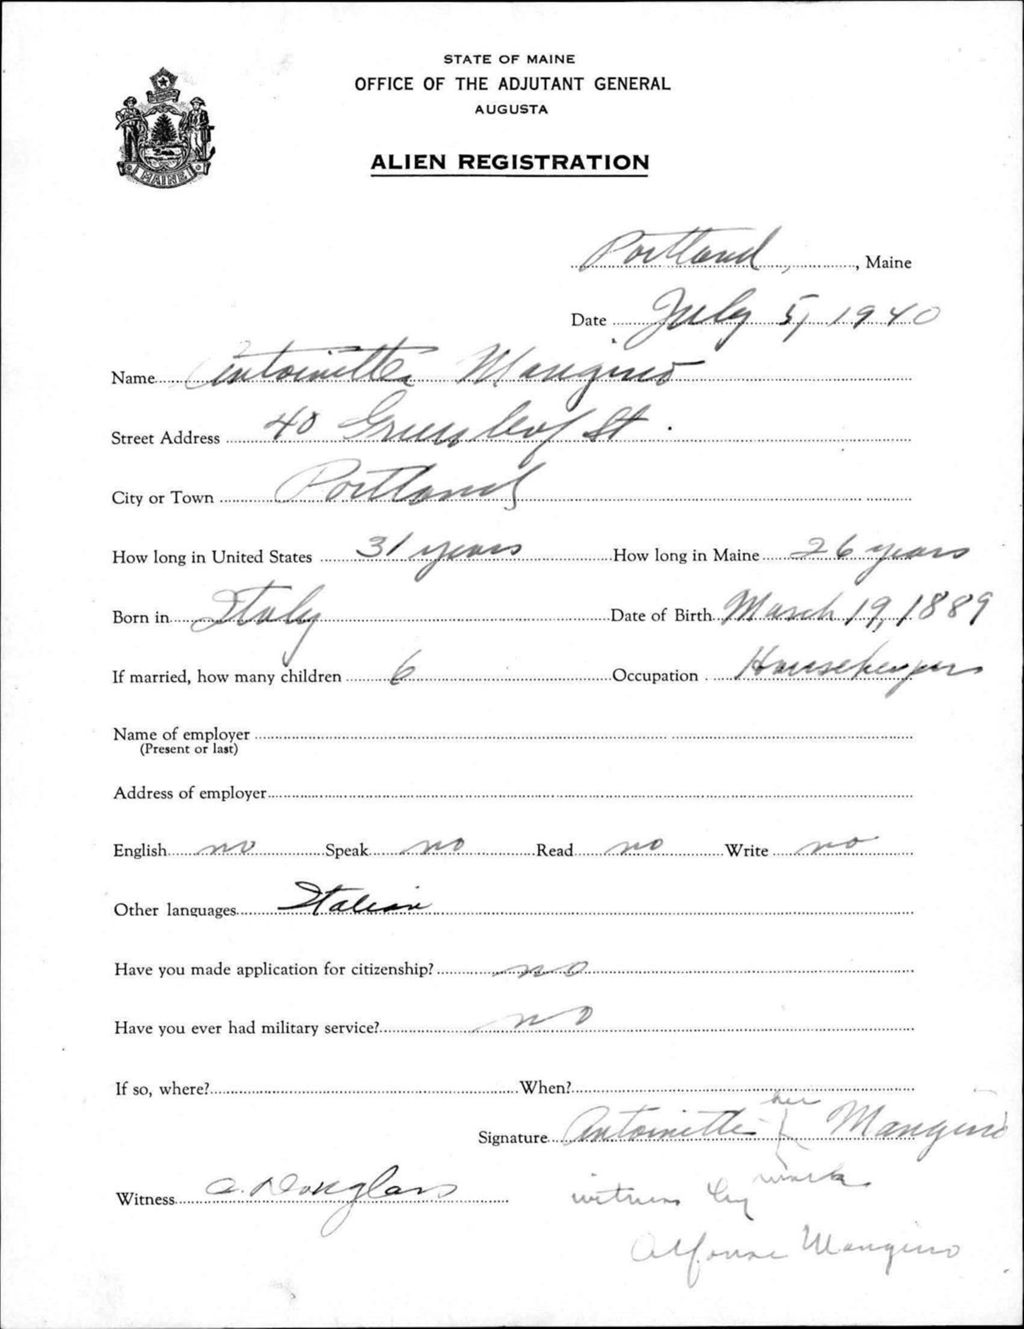 STATE OF MAINE
OFFICE OF THE ADJUTANT GENERAL
AUGUSTA
ALIEN REGISTRATION
MAINE
Portland, Maine
Date July 5, 1940
Name Antoinette Mangino
Street Address 40 Greenleaf St.
City or Town Portland
How long in United States 31 years How long in Maine 26 years
Born in Italy Date of Birth March 19, 1889
If married, how many children 6 Occupation Housekeeper
Name of employer
(Present or last)
Address of employer
English no Speak no Read no Write no
Other languages Italian
Have you made application for citizenship? no
Have you ever had military service? no
If so, where? When?
her
Signature Antoinette X Mangino
mark
Witness A. Douglas witness by
Alfonse Mangino